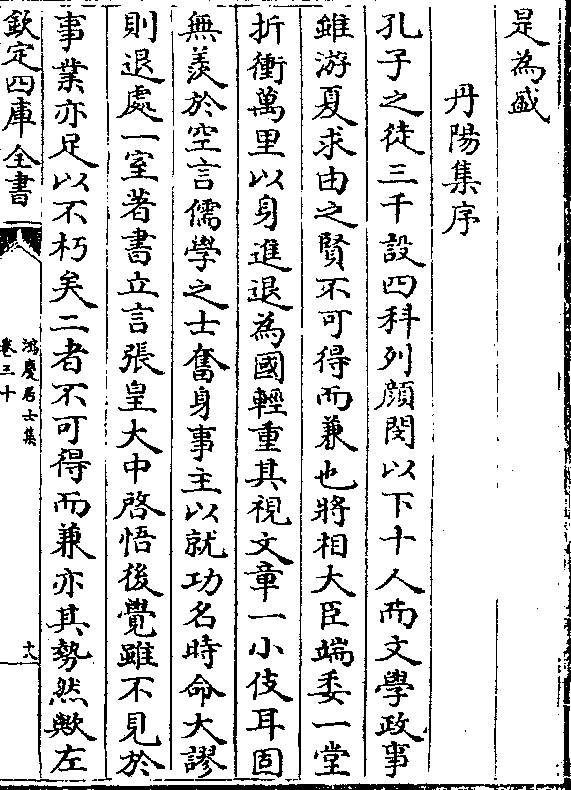 是為盛
丹陽集序
孔子之徒三千設四科列顔閔以下十人而文學政事
雖游夏求由之賢不可得而兼也將相大臣端委一堂
折衝萬里以身進退為國輕重其視文章一小伎耳固
無羨於空言儒學之士奮身事主以就功名時命大謬
則退處一室著書立言張皇大中啓悟後覺雖不見於
事業亦足以不朽矣二者不可得而兼亦其勢然歟左
欽定四庫全書
鴻慶居士集
卷三十
十八